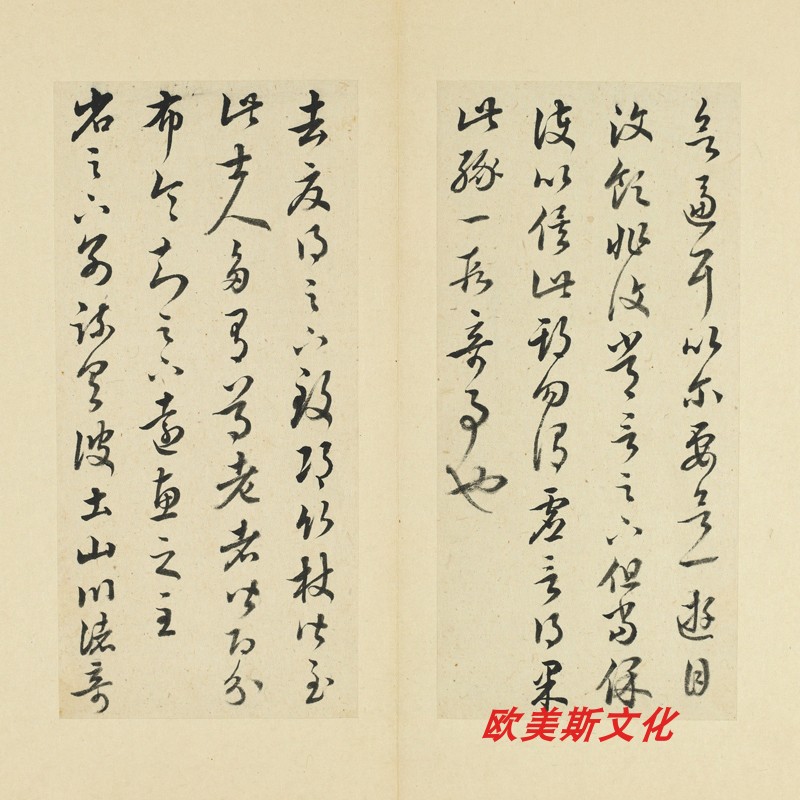 欲逼耳以爾要欲一遊目
汶領非復常言足下但當保
護以俟此期勿謂虛言得果
此緣一段奇事也
去夏得足下致邛竹杖皆至
此士人多有尊老者皆即分
布令知足下遠惠之至
省足下別疏具彼土山川諸奇
欧美斯文化